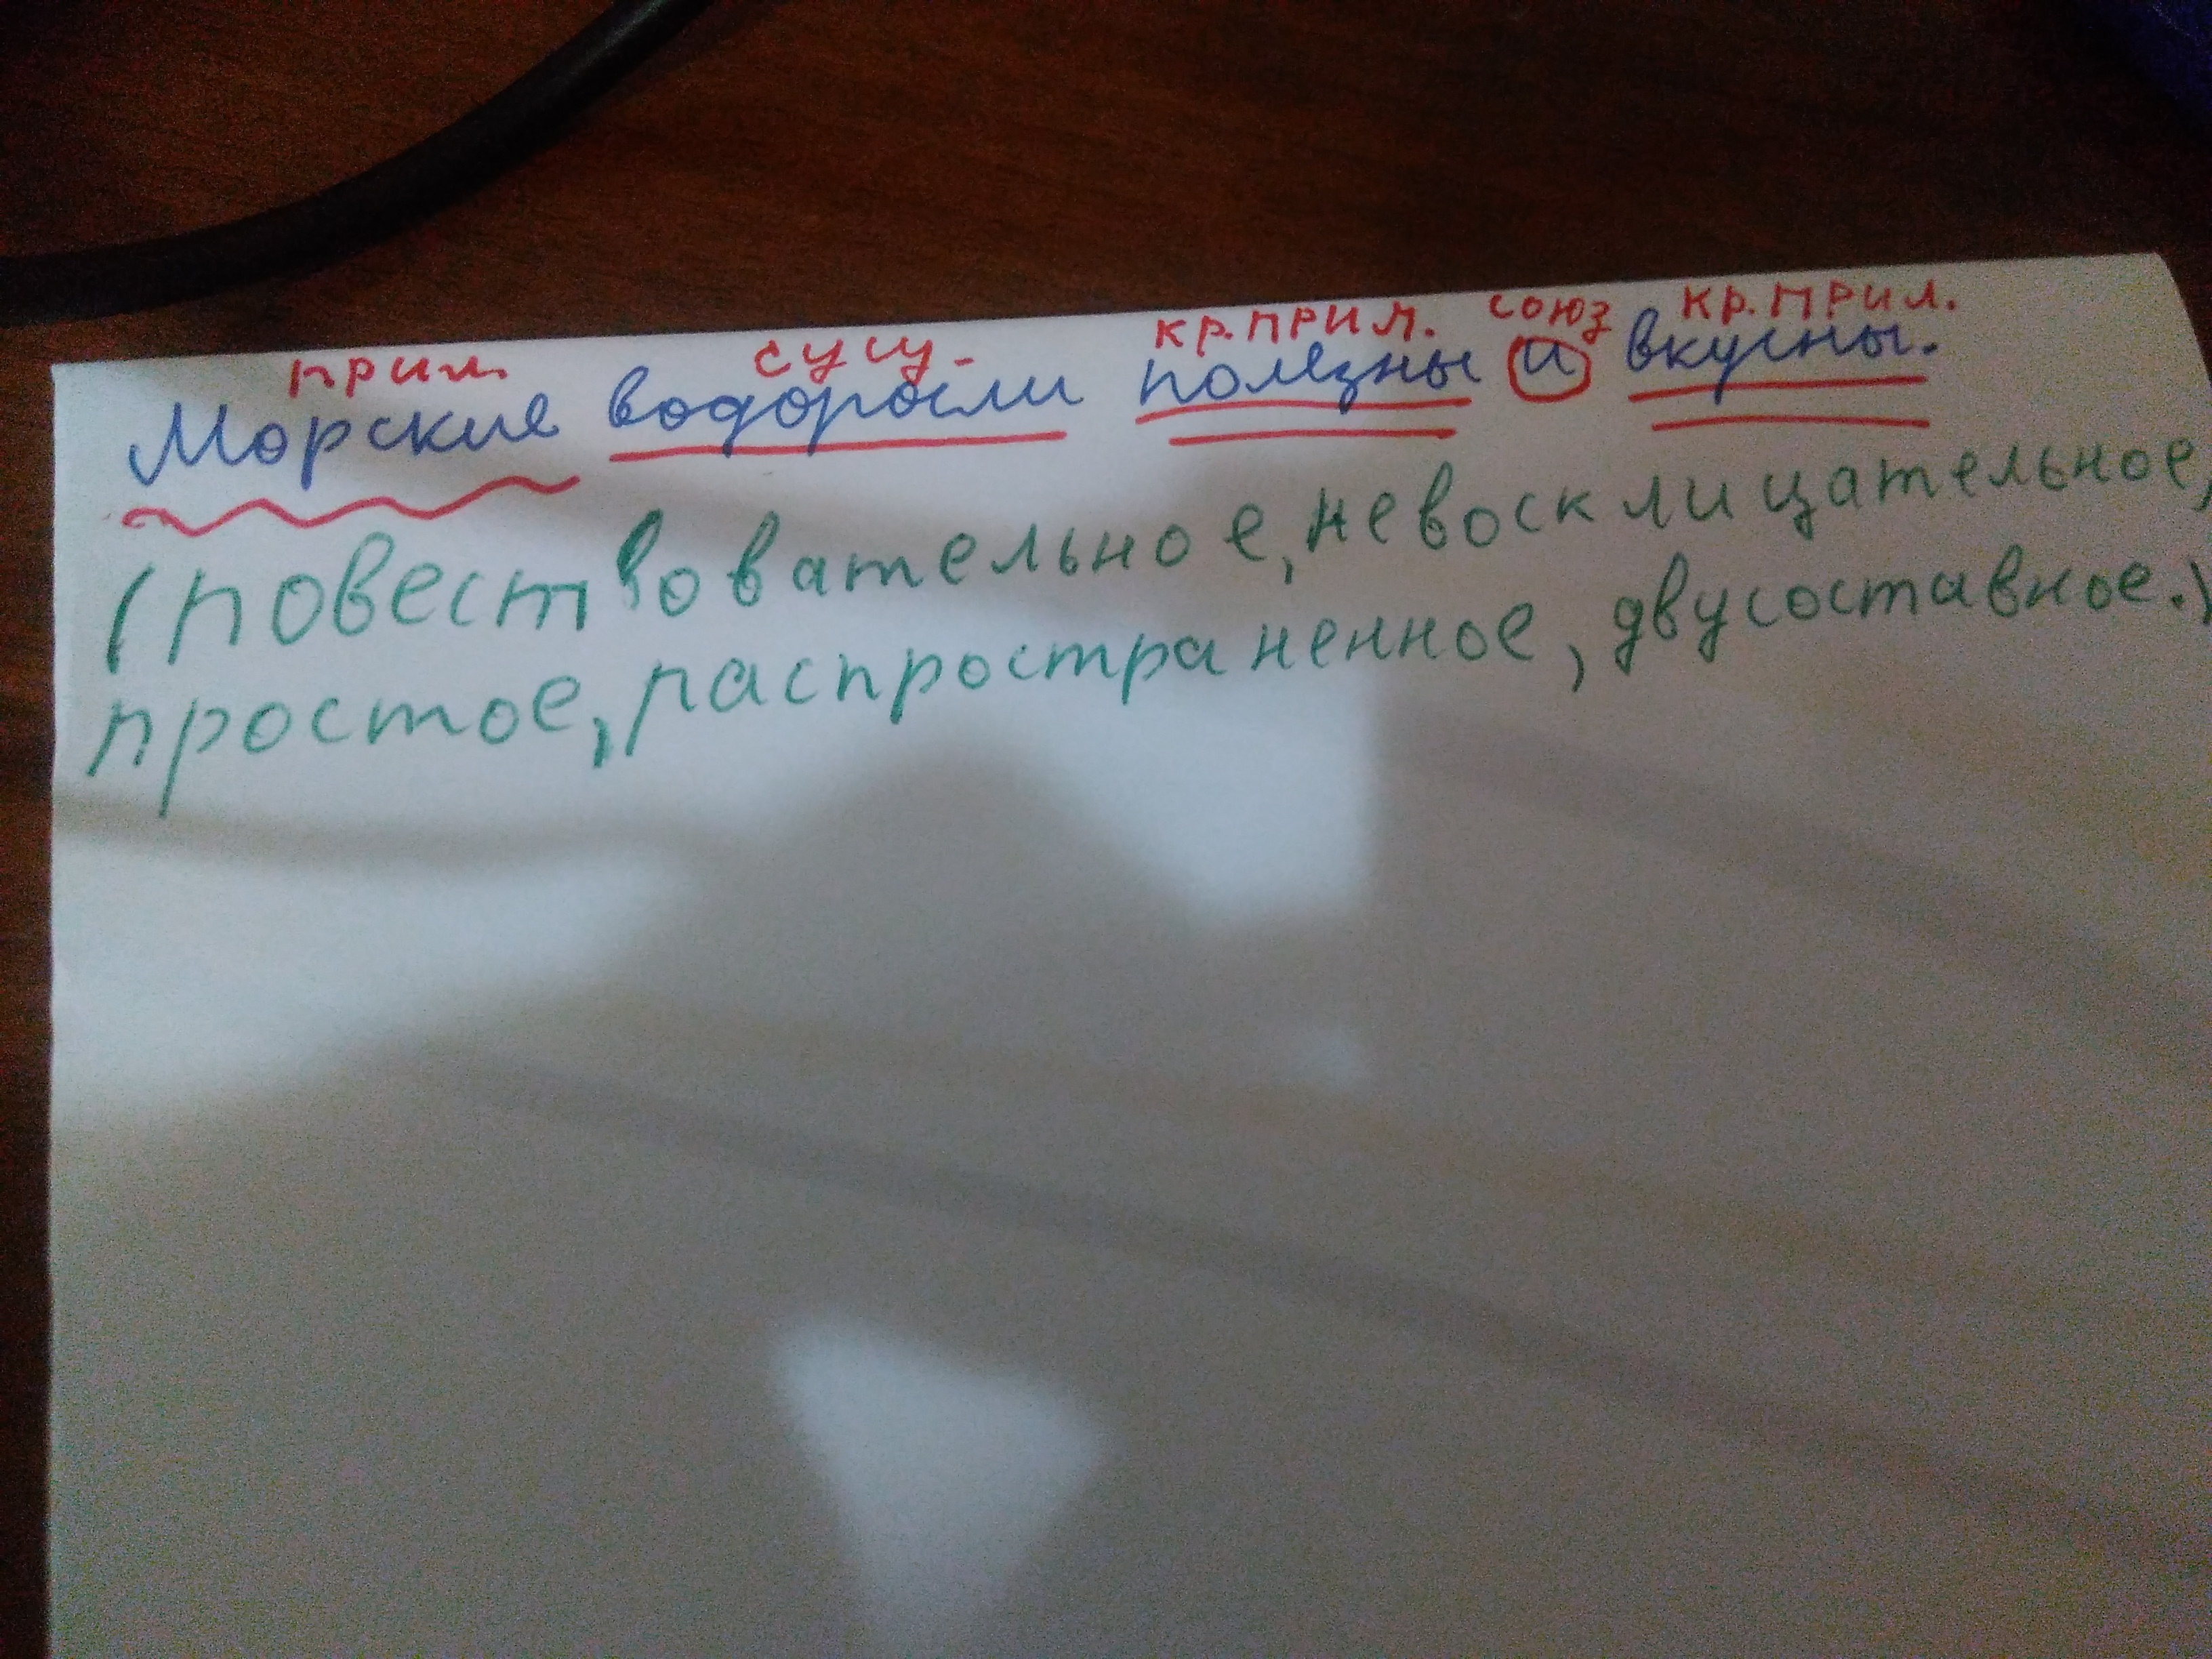 прил. сущ. кр.прил. союз кр.прил.
Морские водоросли полезны и вкусны.
(повествовательное, невосклицательное,
простое, распространенное, двусоставное.)